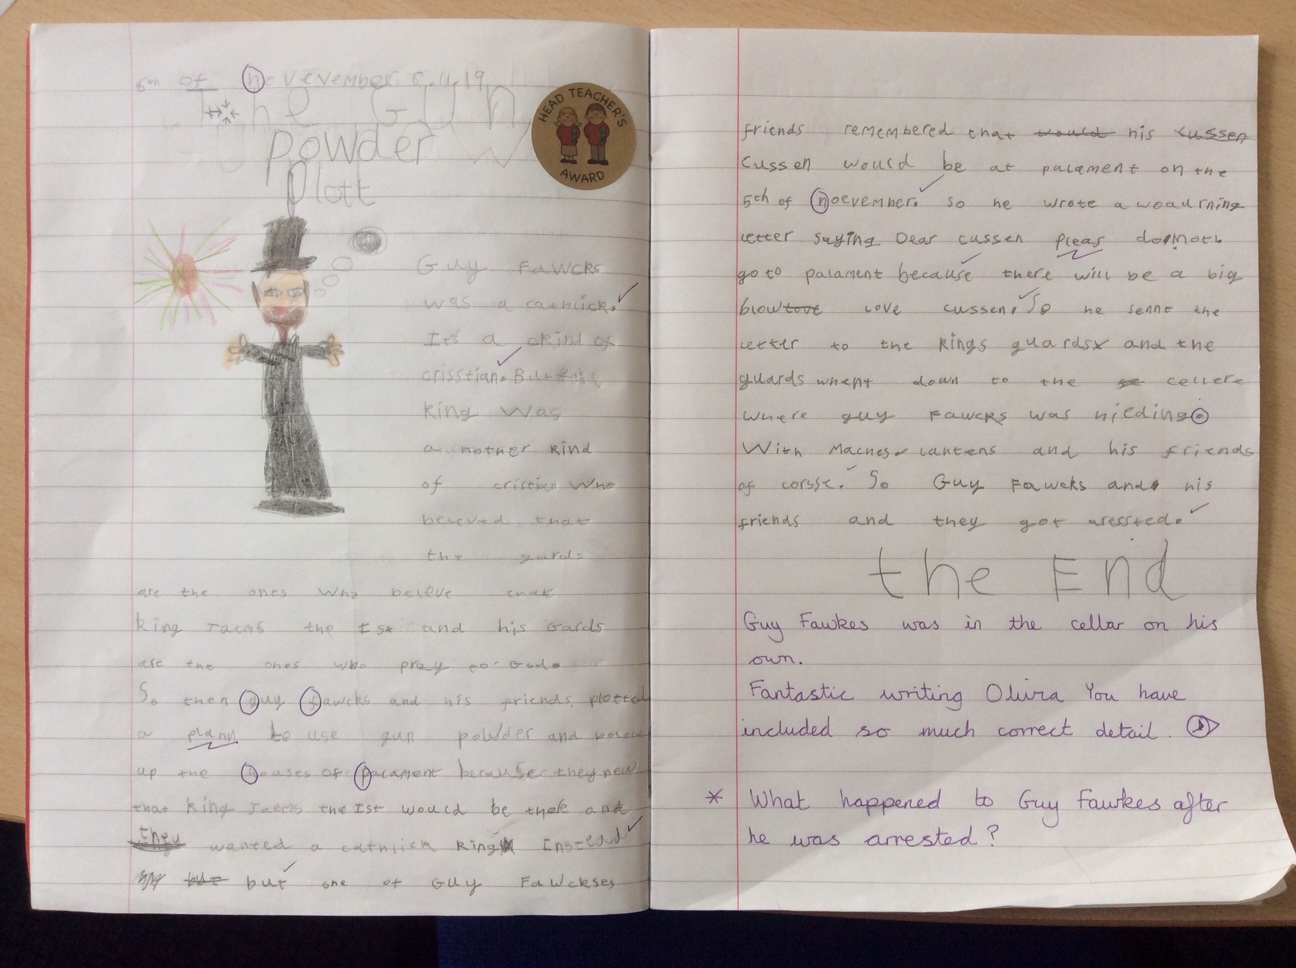 5th of november 5.11.19
The Gun
powder
plott
HEAD TEACHER'S
AWARD
Guy Fawcks
was a cathlick.
It's a ckind of
crisstian. But the
king was
a nother kind
of cristian who
beleved that
the gards
are the ones who beleve that
king Jacms the Ist and his Gards
are the ones who pray to God.
So then guy fawcks and his friends plotted
a plann to use gun powder and
up the houses of parament because they new
that king the Ist would be thek and
they wanted a cathlick king Instead
but one of Guy Fawckses
friends remembered that would his cussen
Cussen would be at palament on the
5th of noevember. so he wrote a woaurning
letter saying Dear cussen pleas do not
go to palament because there will be a big
blowtoot love cussen. So he sennt the
letter to the kings guards and the
guards whent down to the cellere
where guy Fawcks was hieding.
With Maches lantens and his friends
of corsse. So Guy Fawcks and his
friends and they got aressted.
the End
Guy Fawkes was in the cellar on his
own.
Fantastic writing Olivia You have
included so much correct detail.
* What happened to Guy Fawkes after
he was arrested?